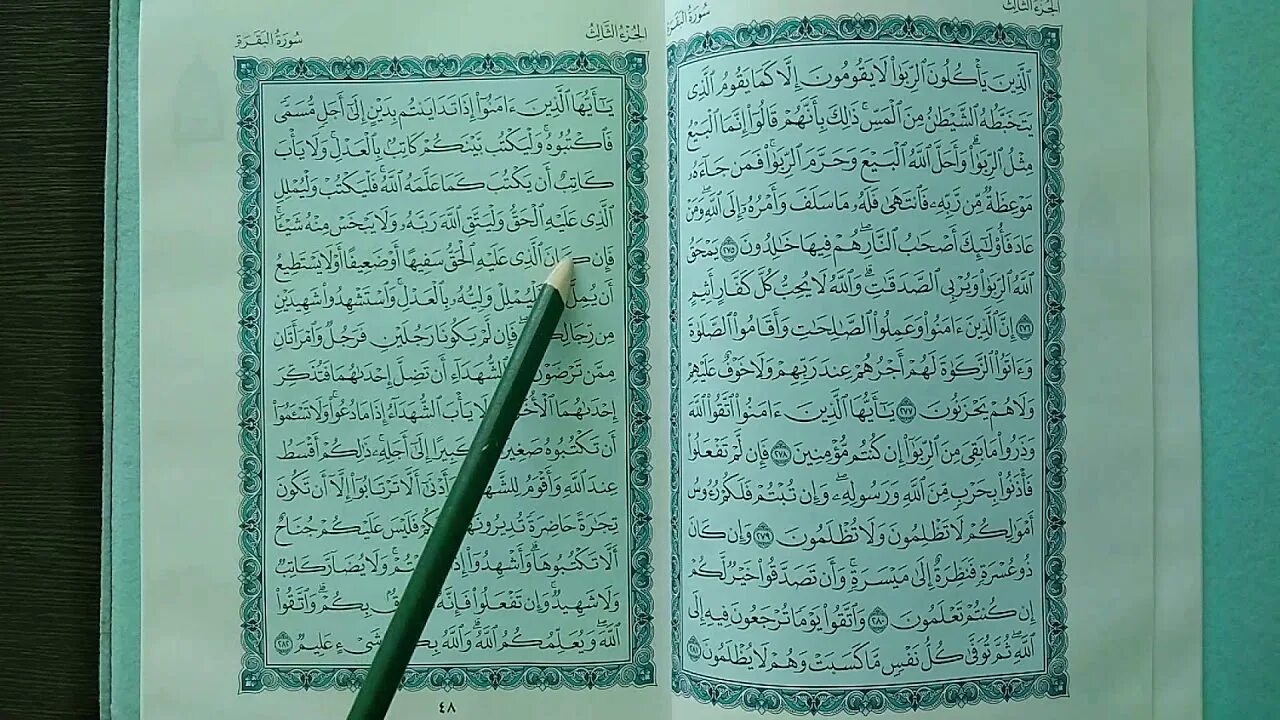 الجزء الثالث
سورة البقرة
ٱلَّذِينَ يَأۡكُلُونَ ٱلرِّبَوٰاْ لَا يَقُومُونَ إِلَّا كَمَا يَقُومُ ٱلَّذِي
يَتَخَبَّطُهُ ٱلشَّيۡطَٰنُ مِنَ ٱلۡمَسِّۚ ذَٰلِكَ بِأَنَّهُمۡ قَالُوٓاْ إِنَّمَا ٱلۡبَيۡعُ
مِثۡلُ ٱلرِّبَوٰاْۗ وَأَحَلَّ ٱللَّهُ ٱلۡبَيۡعَ وَحَرَّمَ ٱلرِّبَوٰاْۚ فَمَن جَآءَهُۥ
مَوۡعِظَةٞ مِّن رَّبِّهِۦ فَٱنتَهَىٰ فَلَهُۥ مَا سَلَفَ وَأَمۡرُهُۥٓ إِلَى ٱللَّهِۖ وَمَنۡ
عَادَ فَأُوْلَٰٓئِكَ أَصۡحَٰبُ ٱلنَّارِۖ هُمۡ فِيهَا خَٰلِدُونَ ٢٧٥ يَمۡحَقُ
ٱللَّهُ ٱلرِّبَوٰاْ وَيُرۡبِي ٱلصَّدَقَٰتِۗ وَٱللَّهُ لَا يُحِبُّ كُلَّ كَفَّارٍ أَثِيمٍ
٢٧٦ إِنَّ ٱلَّذِينَ ءَامَنُواْ وَعَمِلُواْ ٱلصَّٰلِحَٰتِ وَأَقَامُواْ ٱلصَّلَوٰةَ
وَءَاتَوُاْ ٱلزَّكَوٰةَ لَهُمۡ أَجۡرُهُمۡ عِندَ رَبِّهِمۡ وَلَا خَوۡفٌ عَلَيۡهِمۡ
وَلَا هُمۡ يَحۡزَنُونَ ٢٧٧ يَٰٓأَيُّهَا ٱلَّذِينَ ءَامَنُواْ ٱتَّقُواْ ٱللَّهَ
وَذَرُواْ مَا بَقِيَ مِنَ ٱلرِّبَوٰٓاْ إِن كُنتُم مُّؤۡمِنِينَ ٢٧٨ فَإِن لَّمۡ تَفۡعَلُواْ
فَأۡذَنُواْ بِحَرۡبٖ مِّنَ ٱللَّهِ وَرَسُولِهِۦۖ وَإِن تُبۡتُمۡ فَلَكُمۡ رُءُوسُ
أَمۡوَٰلِكُمۡ لَا تَظۡلِمُونَ وَلَا تُظۡلَمُونَ ٢٧٩ وَإِن كَانَ
ذُو عُسۡرَةٖ فَنَظِرَةٌ إِلَىٰ مَيۡسَرَةٖۚ وَأَن تَصَدَّقُواْ خَيۡرٞ لَّكُمۡ
إِن كُنتُمۡ تَعۡلَمُونَ ٢٨٠ وَٱتَّقُواْ يَوۡمٗا تُرۡجَعُونَ فِيهِ إِلَى
ٱللَّهِۖ ثُمَّ تُوَفَّىٰ كُلُّ نَفۡسٖ مَّا كَسَبَتۡ وَهُمۡ لَا يُظۡلَمُونَ ٢٨١
الجزء الثالث
سورة البقرة
يَٰٓأَيُّهَا ٱلَّذِينَ ءَامَنُوٓاْ إِذَا تَدَايَنتُم بِدَيۡنٍ إِلَىٰٓ أَجَلٖ مُّسَمّٗى
فَٱكۡتُبُوهُۚ وَلۡيَكۡتُب بَّيۡنَكُمۡ كَاتِبُۢ بِٱلۡعَدۡلِۚ وَلَا يَأۡبَ
كَاتِبٌ أَن يَكۡتُبَ كَمَا عَلَّمَهُ ٱللَّهُۚ فَلۡيَكۡتُبۡ وَلۡيُمۡلِلِ
ٱلَّذِي عَلَيۡهِ ٱلۡحَقُّ وَلۡيَتَّقِ ٱللَّهَ رَبَّهُۥ وَلَا يَبۡخَسۡ مِنۡهُ شَيۡـٔٗاۚ
فَإِن كَانَ ٱلَّذِي عَلَيۡهِ ٱلۡحَقُّ سَفِيهًا أَوۡ ضَعِيفًا أَوۡ لَا يَسۡتَطِيعُ
أَن يُمِلَّ فَلۡيُمۡلِلۡ وَلِيُّهُۥ بِٱلۡعَدۡلِۚ وَٱسۡتَشۡهِدُواْ شَهِيدَيۡنِ
مِن رِّجَالِكُمۡۖ فَإِن لَّمۡ يَكُونَا رَجُلَيۡنِ فَرَجُلٞ وَٱمۡرَأَتَانِ
مِمَّن تَرۡضَوۡنَ ٱلشُّهَدَآءِ أَن تَضِلَّ إِحۡدَىٰهُمَا فَتُذَكِّرَ
إِحۡدَىٰهُمَا ٱلۡأُخۡ يَأۡبَ ٱلشُّهَدَآءُ إِذَا مَا دُعُواْۚ وَلَا تَسۡـَٔمُوٓاْ
أَن تَكۡتُبُوهُ صَغِيرًا كَبِيرًا إِلَىٰٓ أَجَلِهِۦۚ ذَٰلِكُمۡ أَقۡسَطُ
عِندَ ٱللَّهِ وَأَقۡوَمُ لِلشَّهَٰ وَأَدۡنَىٰٓ أَلَّا تَرۡتَابُوٓاْ إِلَّآ أَن تَكُونَ
تِجَٰرَةً حَاضِرَةٗ تُدِيرُونَهَا فَلَيۡسَ عَلَيۡكُمۡ جُنَاحٌ
أَلَّا تَكۡتُبُوهَاۗ وَأَشۡهِدُوٓاْ إِذَا وَلَا يُضَآرَّ كَاتِبٞ
وَلَا شَهِيدٞۚ وَإِن تَفۡعَلُواْ فَإِنَّهُۥ بِكُمۡۗ وَٱتَّقُواْ
ٱللَّهَۖ وَيُعَلِّمُكُمُ ٱللَّهُۗ وَٱللَّهُ بِكُلِّ شَيۡءٍ عَلِيمٞ ٢٨٢
٤٨